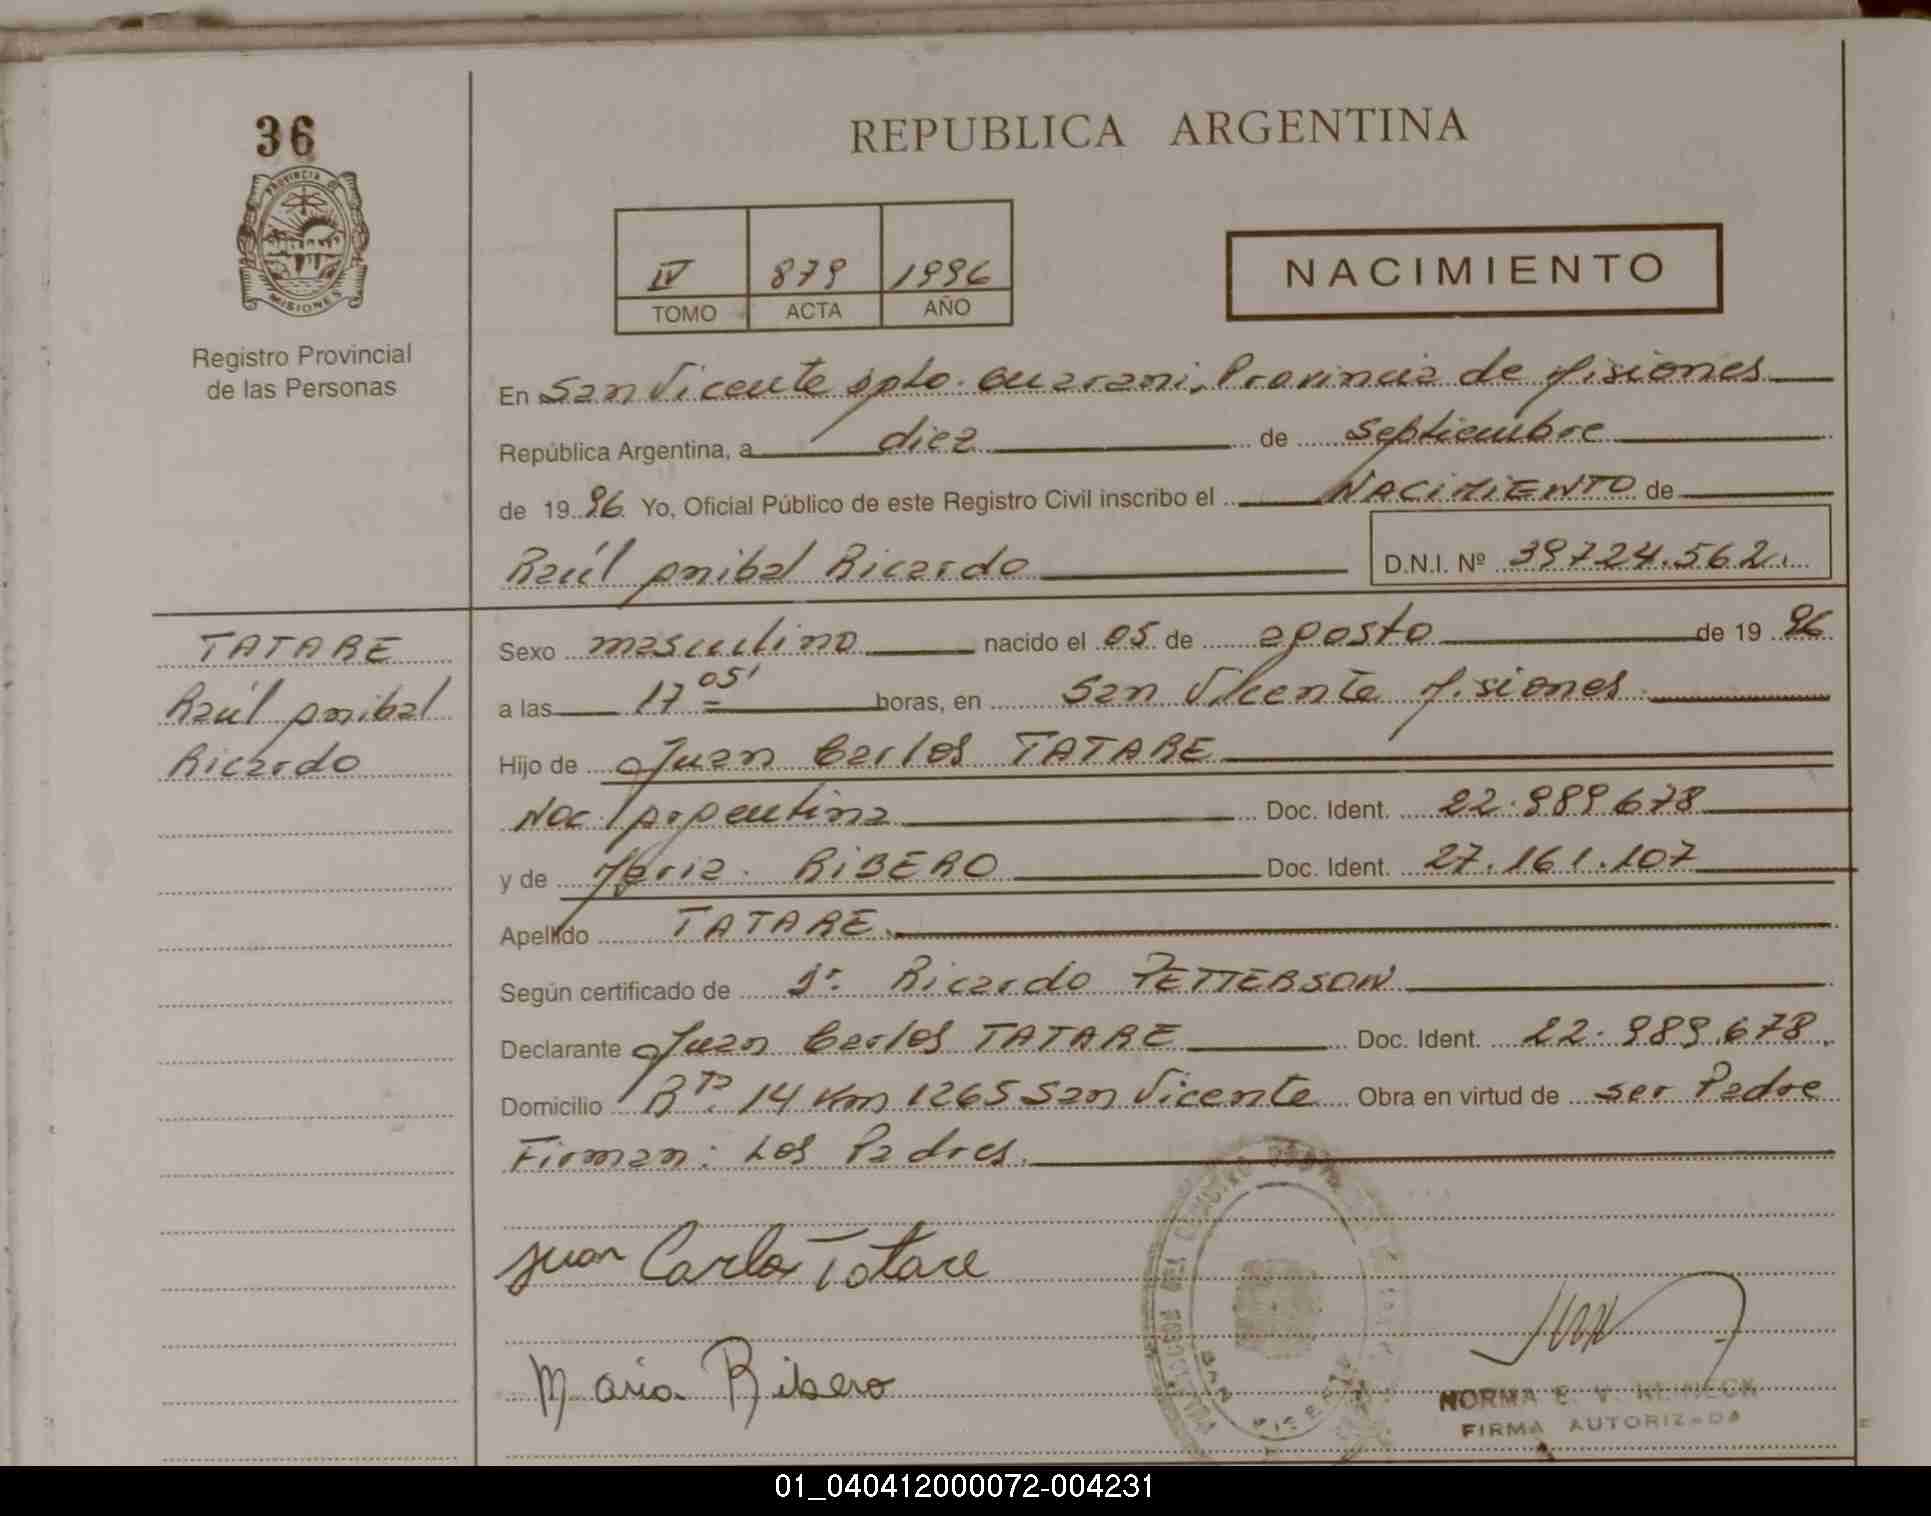 36
REPUBLICA ARGENTINA
PROVINCIA DE
MISIONES
Registro Provincial
de las Personas
IV 879 1996
TOMO ACTA AÑO
NACIMIENTO
En San Vicente Dpto. Guarani, Provincia de Misiones
República Argentina, a diez de Septiembre
de 1996 Yo, Oficial Público de este Registro Civil inscribo el NACIMIENTO de
Raúl Anibal Ricardo D.N.I. Nº 39724.562.
TATARE
Raúl Anibal
Ricardo
Sexo masculino nacido el 05 de agosto de 1996
a las 17 05' horas, en San Vicente Misiones
Hijo de Juan Carlos TATARE
Nac. Argentina Doc. Ident. 22.989.678
y de Maria RIBERO Doc. Ident. 27.161.107
Apellido TATARE.
Según certificado de Dr. Ricardo PETTERSON
Declarante Juan Carlos TATARE Doc. Ident. 22.989.678.
Domicilio Rta. 14 Km 1265 San Vicente Obra en virtud de ser Padre
Firman: Los Padres.
Juan Carlos Tatare
Maria Ribero
SAN VICENTE
NORMA E. V. REINECK
FIRMA AUTORIZADA
01_040412000072-004231